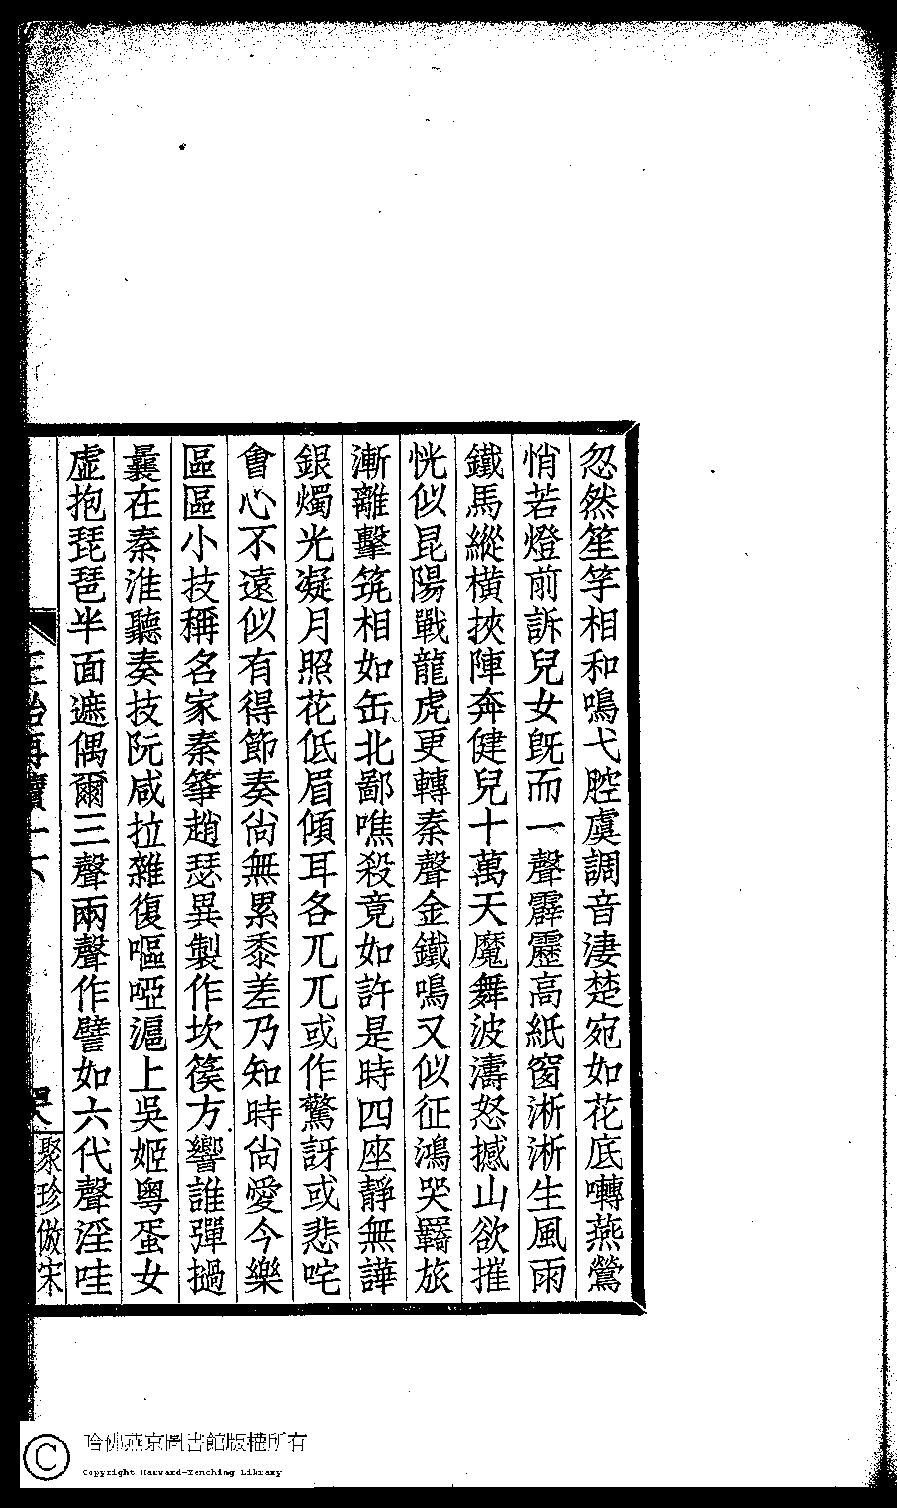 忽然笙竽相和鳴弋腔虞調音淒楚宛如花底囀燕鶯
悄若燈前訴兒女旣而一聲霹靂高紙窗淅淅生風雨
鐵馬縱橫挾陣奔健兒十萬天魔舞波濤怒撼山欲摧
恍似昆陽戰龍虎更轉秦聲金鐵鳴又似征鴻哭羇旅
漸離擊筑相如缶北鄙噍殺竟如許是時四座靜無譁
銀燭光凝月照花低眉傾耳各兀兀或作驚訝或悲咤
會心不遠似有得節奏尙無累黍差乃知時尙愛今樂
區區小技稱名家秦箏趙瑟異製作坎篌方響誰彈撾
曩在秦淮聽奏技阮咸拉雜復嘔啞滬上吳姬粤蛋女
虛抱琵琶半面遮偶爾三聲兩聲作譬如六代聲淫哇
聚珍倣宋
哈佛燕京圖書館版權所有
Copyright Harvard-Yenching Library